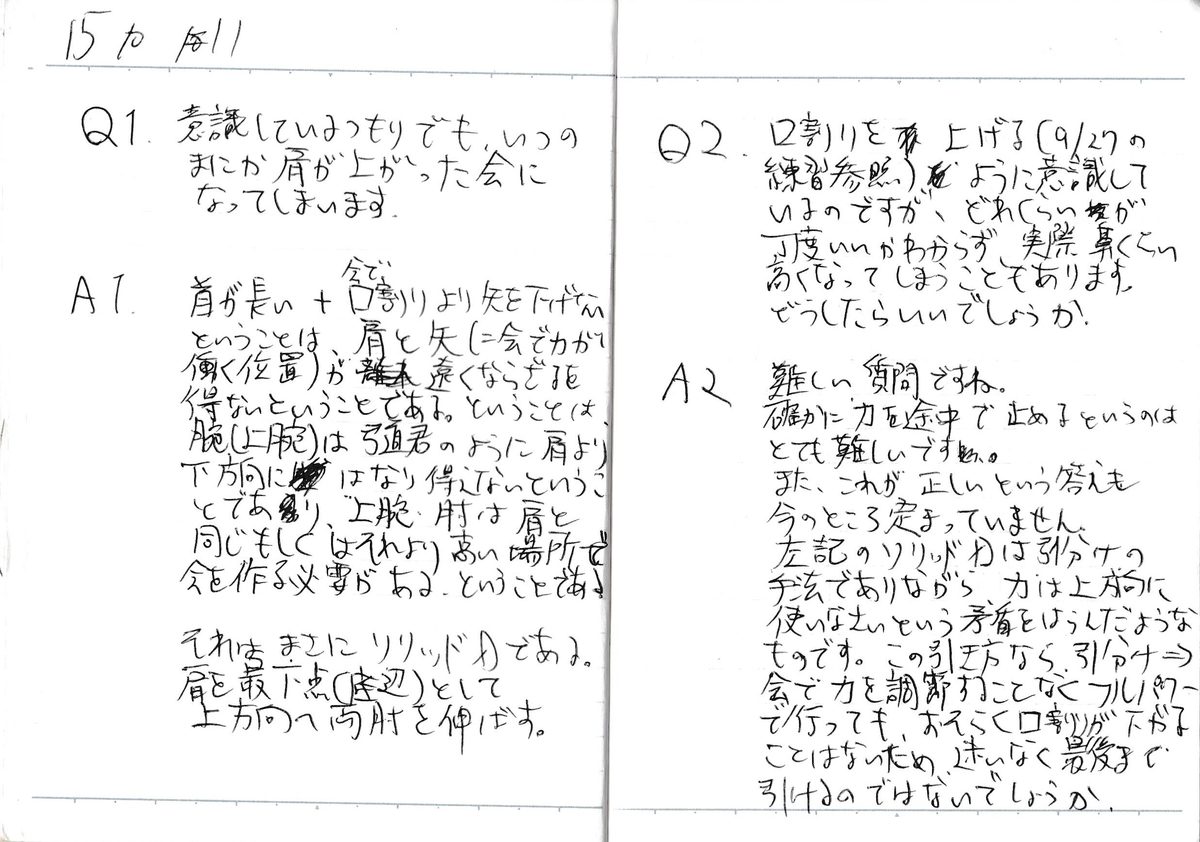 15カ 毎11
Q1. 意識しているつもりでも、いつの
まにか肩が上がった会に
なってしまいます。
A1. 首が長い + 会で口割りより矢を下げない
ということは、肩と矢(に会で力が
働く位置)が遠くならざるを
得ないということである。ということは、
腕(上腕)は弓道君のように肩より
下方向にはなり得えないというこ
とであり、上腕・肘は肩と
同じもしくはそれより高い場所で
会を作る必要がある、ということである
それはまさにソリッド力である。
肩を最下点(底辺)として
上方向へ両肘を伸ばす。
Q2. 口割りを上げる(9/27の
練習参照)ように意識して
いるのですが、どれくらいが
丁度いいかわからず、実際鼻くらい
高くなってしまうこともあります。
どうしたらいいでしょうか。
A2 難しい質問ですね。
確かに力を途中で止めるというのは
とても難しいです。
また、これが正しいという答えも
今のところ定まっていません。
左記のソリッド力は引分けの
手法でありながら、力は上方向に
使いなさいという矛盾をはらんだような
ものです。この引き方なら、引分け⇒
会で力を調節することなくフルパワー
で行っても、おそらく口割りが下がる
ことはないため、迷いなく最後まで
引けるのではないでしょうか。